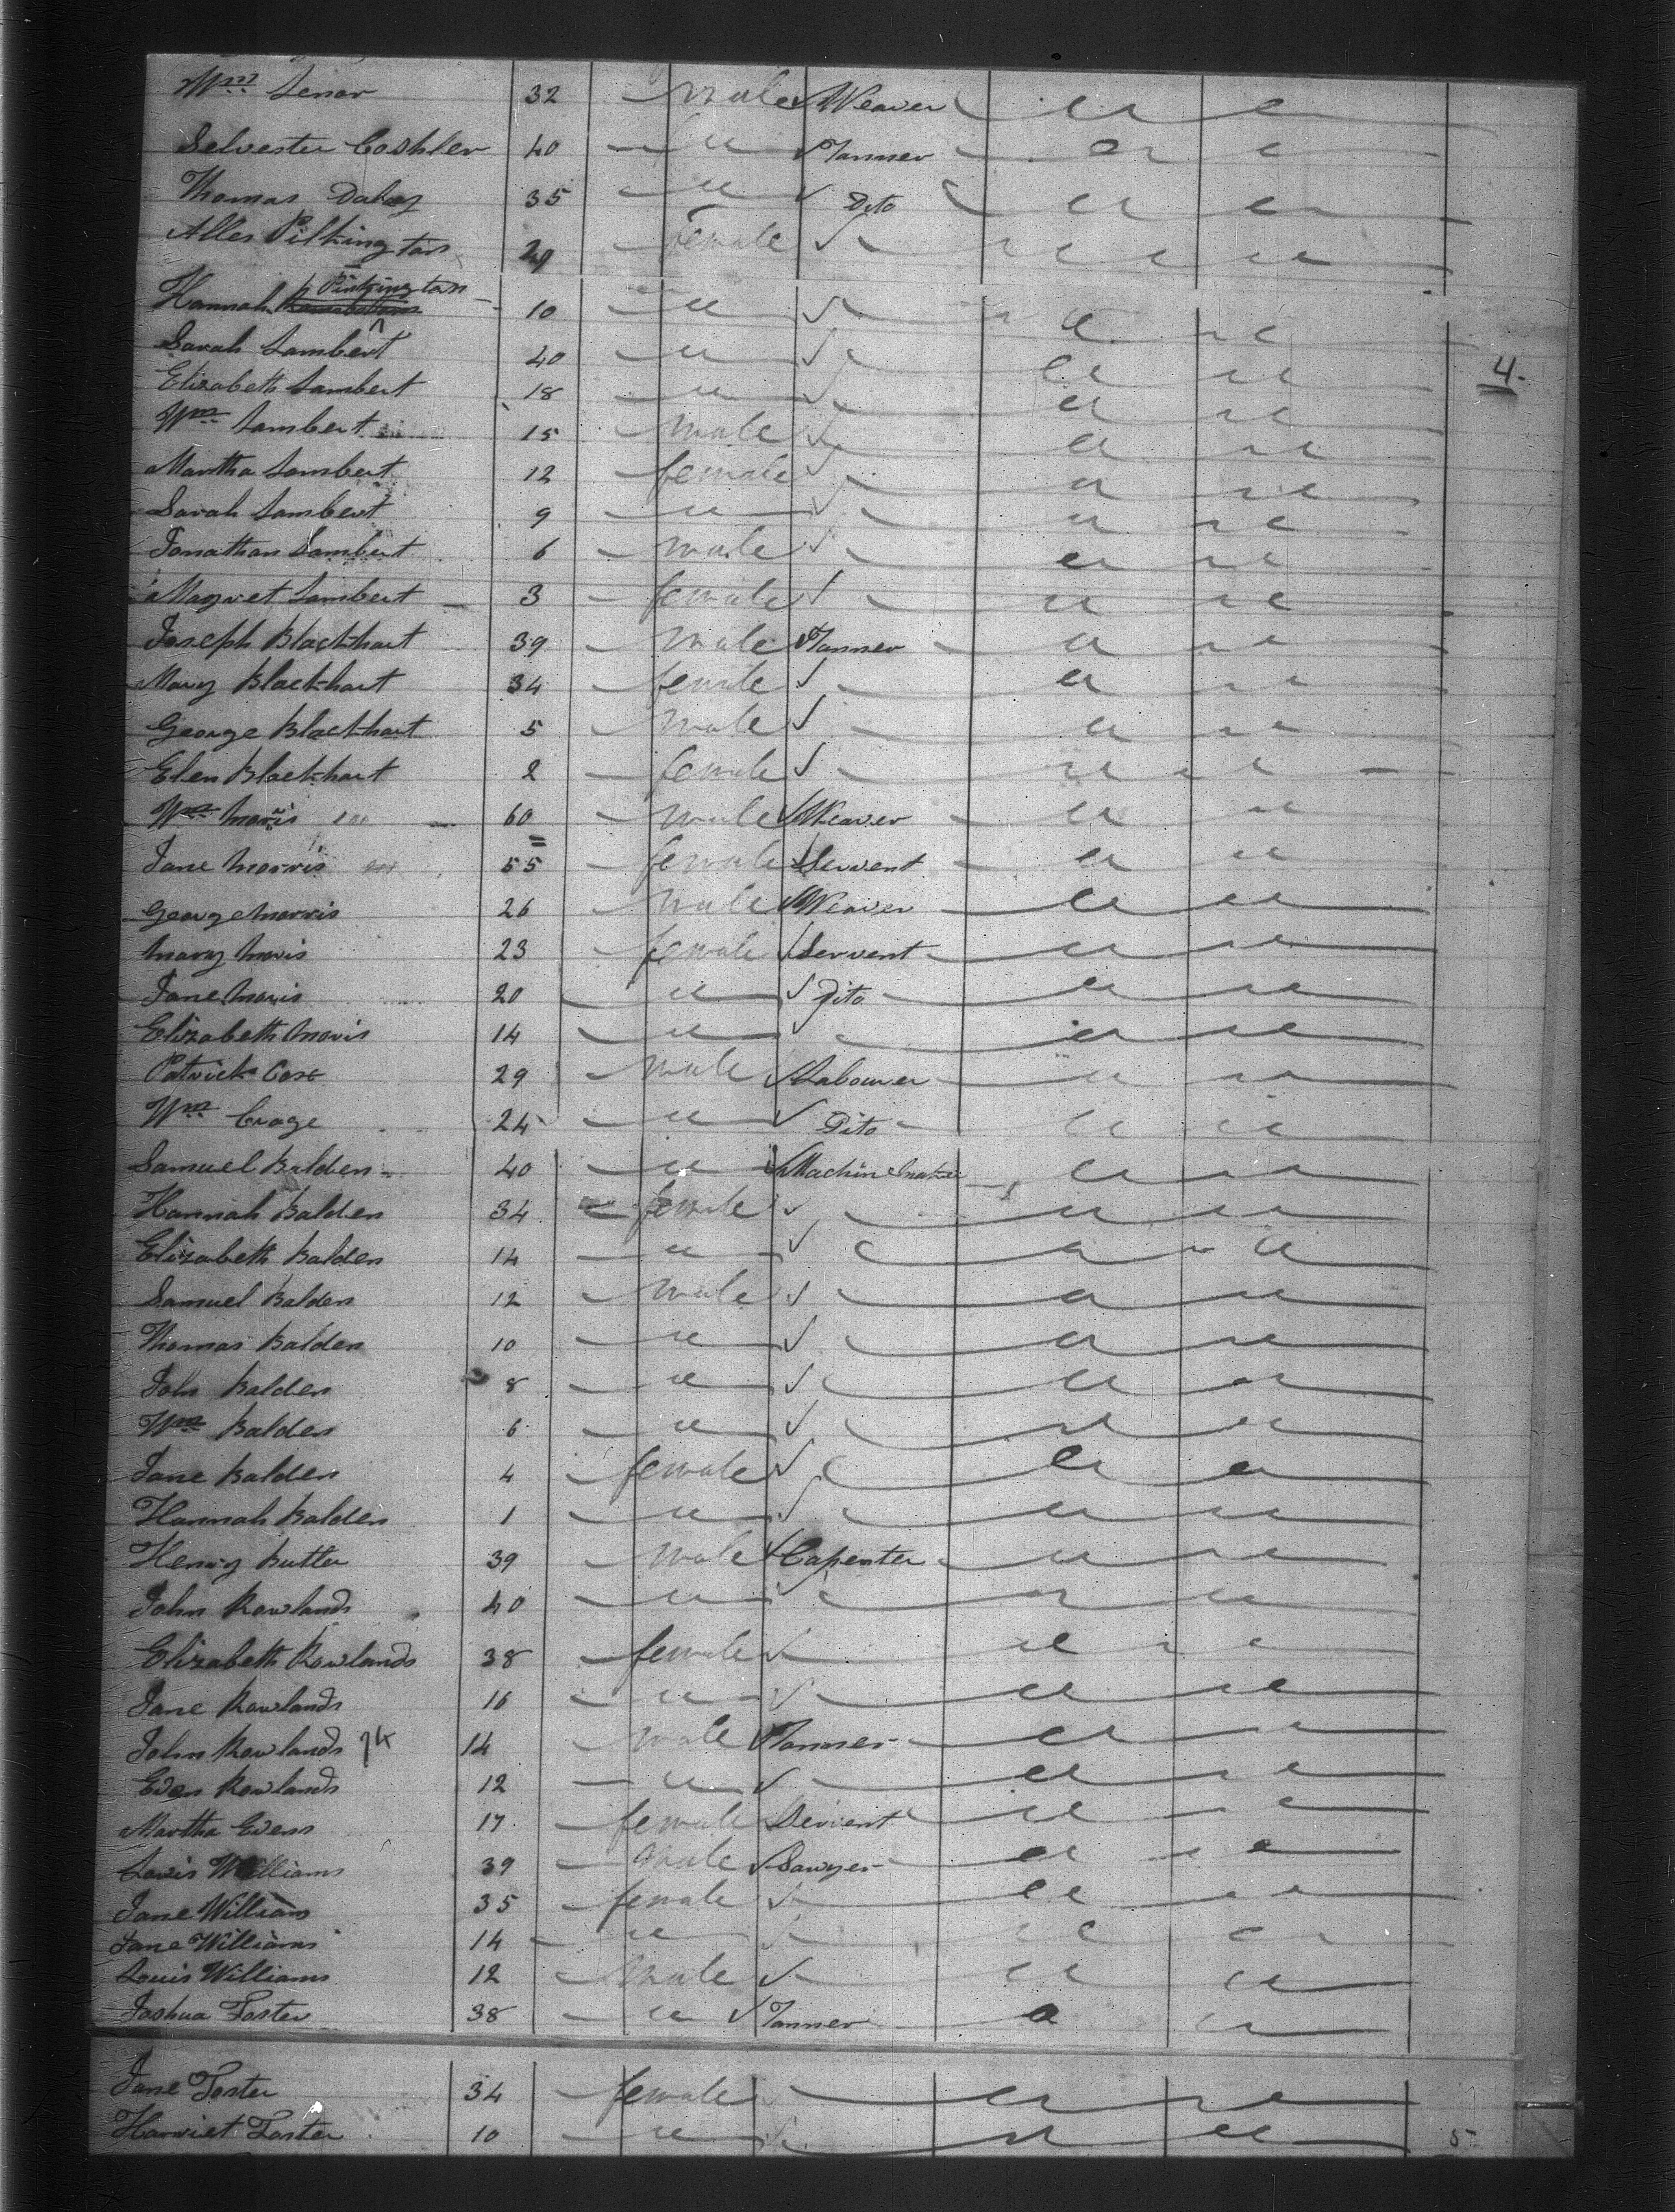 Wm Senor 32 male Weaver " "
Selvester Coshler 40 " Tanner " "
Thomas Daley 35 " Dito " "
Alles Pilkington 29 female " "
Hannah Pinkington 10 " " "
Sarah Lambert 40 " " "
4
Elizabeth Lambert 18 " " "
Wm Lambert 15 male " "
Martha Lambert 12 female " "
Sarah Lambert 9 " " "
Jonathan Lambert 6 male " "
Magret Lambert 3 female " "
Joseph Blackhart 39 male Tanner " "
Mary Blackhart 34 female " "
George Blackhart 5 male " "
Elen Blackhart 2 female " "
Wm Moris 60 male Weaver " "
Jane Morris 55 female Servent " "
George Morris 26 male Weaver " "
Mary Moris 23 female Servent " "
Jane Moris 20 " Dito " "
Elizabeth Moris 14 " " "
Patrick Cox 29 male Labourer " "
Wm Crage 24 " Dito " "
Samuel Balden 40 " Machine maker " "
Hannah Balden 34 female " "
Elizabeth Balden 14 " " "
Samuel Balden 12 male " "
Thomas Balden 10 " " "
John Balden 8 " " "
Wm Balden 6 " " "
Jane Balden 4 female " "
Hannah Balden 1 " " "
Henry Butler 39 male Capenter " "
John Rowlands 40 " " "
Elizabeth Rowlands 38 female " "
Jane Rowlands 16 " " "
John Rowlands 14 14 male Tanner " "
Even Rowlands 12 " " "
Martha Evens 17 female Servent " "
Lewis Williams 39 male Sawyer " "
Jane Williams 35 female " "
Jane Williams 14 " " "
Louis Williams 12 male " "
Joshua Foster 38 " Tanner " "
Jane Foster 34 female " "
Harriet Foster 10 " " "
5